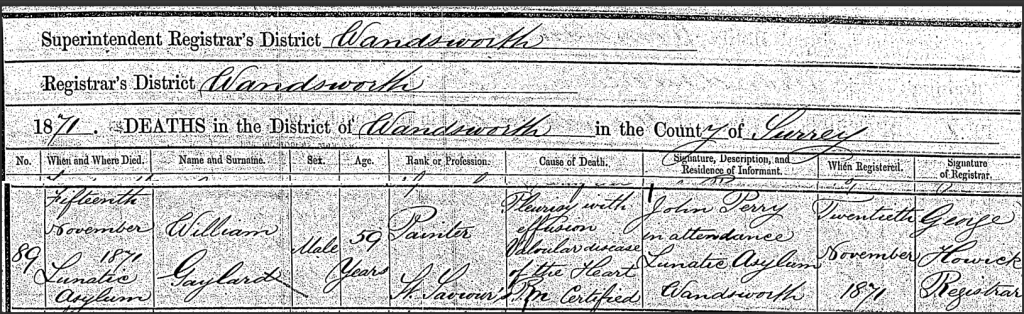 Superintendent Registrar's District Wandsworth
Registrar's District Wandsworth
1871. DEATHS in the District of Wandsworth in the County of Surrey
No. When and Where Died. Name and Surname. Sex. Age. Rank or Profession. Cause of Death. Signature, Description, and Residence of Informant. When Registered. Signature of Registrar.
89
Fifteenth
November
1871
Lunatic
Asylum
William
Gaylard
Male
59
Years
Painter
St. Saviour's
Pleurisy with
effusion
Valvular disease
of the Heart
Certified
John Perry
in attendance
Lunatic Asylum
Wandsworth
Twentieth
November
1871
George
Howick
Registrar